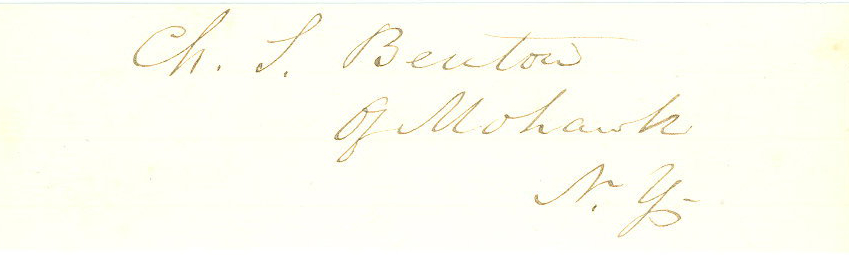 Ch. S. Benton
Of Mohawk
N. Y.